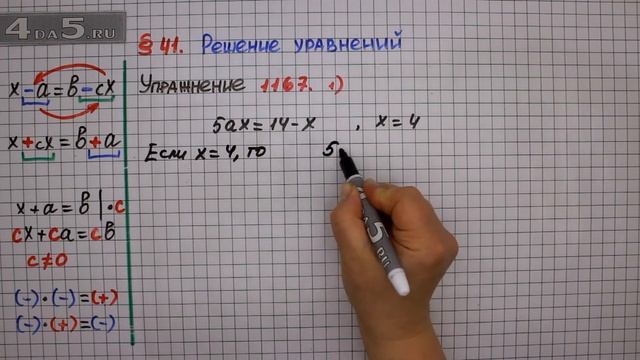 4DA5.RU
§ 41. Решение уравнений
Упражнение 1167. 1)
5ax = 14 - x , x = 4
Если x = 4, то 5
x - a = b - cx
x + cx = b + a
x + a = b | · c
cx + ca = cb
c ≠ 0
(-) · (-) = (+)
(-) · (+) = (-)